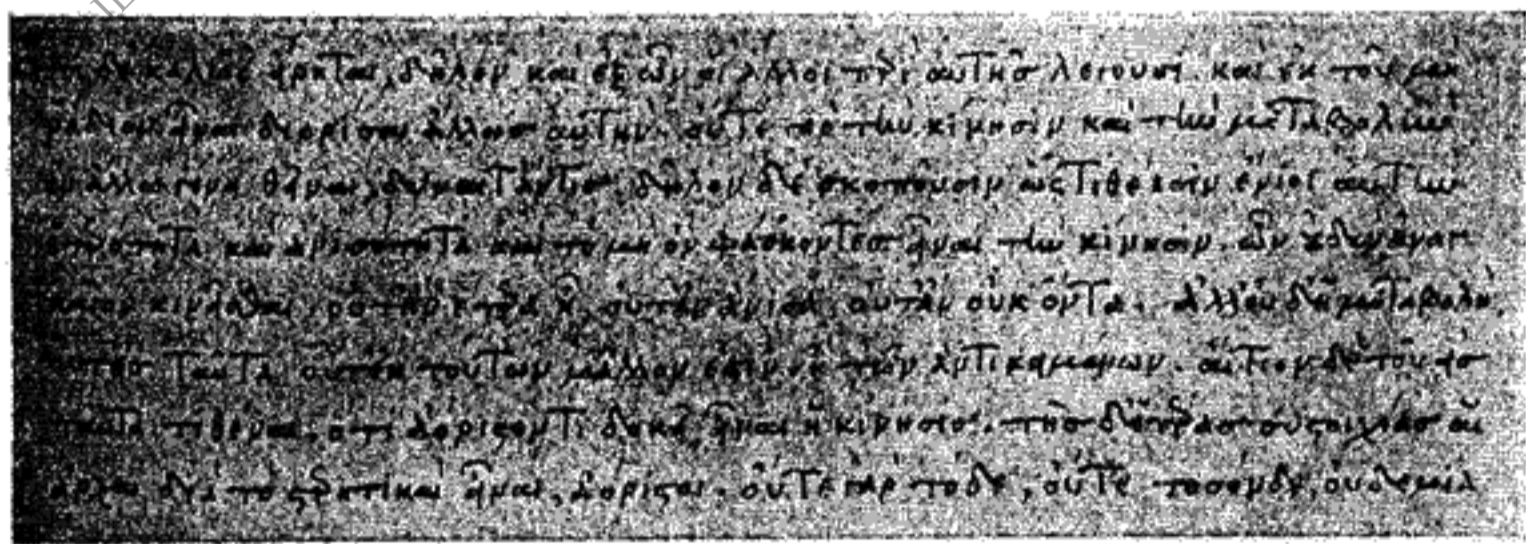 δὲ καλῶς εἴρηται, δῆλον καὶ ἐξ ὧν οἱ ἄλλοι περὶ αὐτῆς λέγουσι. καὶ ἐκ τοῦ μὴ
ῥάδιον εἶναι διορίσαι ἄλλως αὐτήν. οὔτε γὰρ τὴν κίνησιν καὶ τὴν μεταβολὴν
θεῖναι, δύναιτ' ἄν τις. δῆλον δὲ σκοποῦσιν ὡς τιθέασιν ἔνιοι αὐτὴν
ἑτερότητα καὶ ἀνισότητα καὶ τὸ μὴ ὂν φάσκοντες εἶναι τὴν κίνησιν. ὧν οὐδὲν ἀναγ
καῖον κινεῖσθαι. οὔτ' ἂν ἕτερα ᾖ. οὔτ' ἂν ἄνισα. οὔτ' ἂν οὐκ ὄντα. ἀλλ' οὐδ' ἡ μεταβολὴ.
ταῦτα οὔτ' ἐκ τούτων μᾶλλον ἐστιν ἢ ἐκ τῶν ἀντικειμένων. αἴτιον δὲ τοῦ εἰς
ταῦτα τιθέναι. ὅτι ἀόριστόν τι δοκεῖ εἶναι ἡ κίνησις. τῆς δ' ἑτέρας συστοιχίας αἱ
ἀρχαὶ διὰ τὸ στερητικαὶ εἶναι, ἀόριστοι. οὔτε γὰρ τόδε, οὔτε τοιόνδε, οὐδεμία